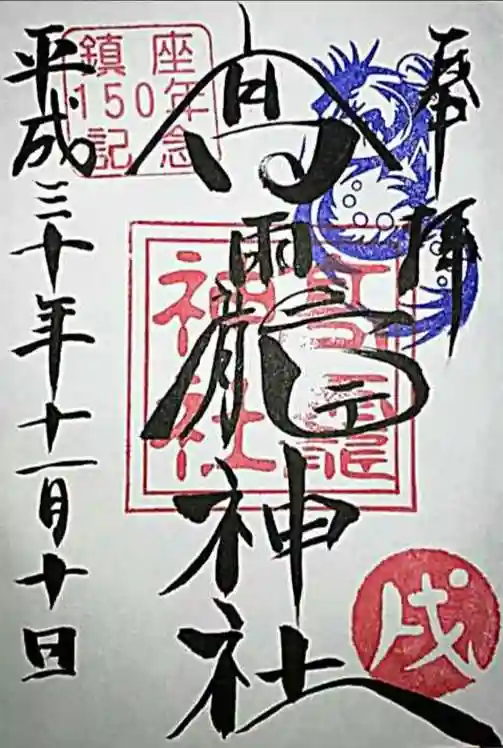 奉拝
高龗神社
平成三十年十一月十日
鎮座
150年
記念
高龗
神社
戌